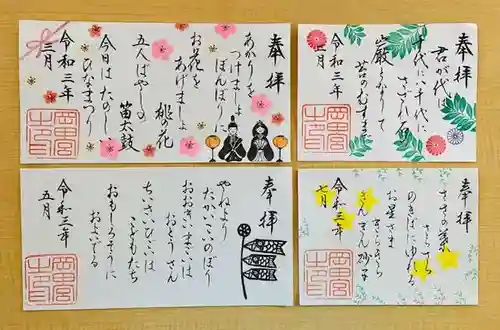 奉拝
あかりを
つけましょ
ぼんぼりに
お花を
あげましょ
桃の花
五人ばやしの
笛太鼓
今日はたのしい
ひなまつり
令和三年
三月
奉拝
君が代は
千代に八千代に
さざれ石の
巌となりて
苔のむすまで
令和三年
奉拝
やねより
たかいこいのぼり
おおきいまごいは
おとうさん
ちいさいひごいは
こどもたち
おもしろそうに
およいでる
令和三年
五月
奉拝
ささの葉
さらさら
のきばにゆれる
お星さま
きらきら
きんぎん砂子
令和三年
七月